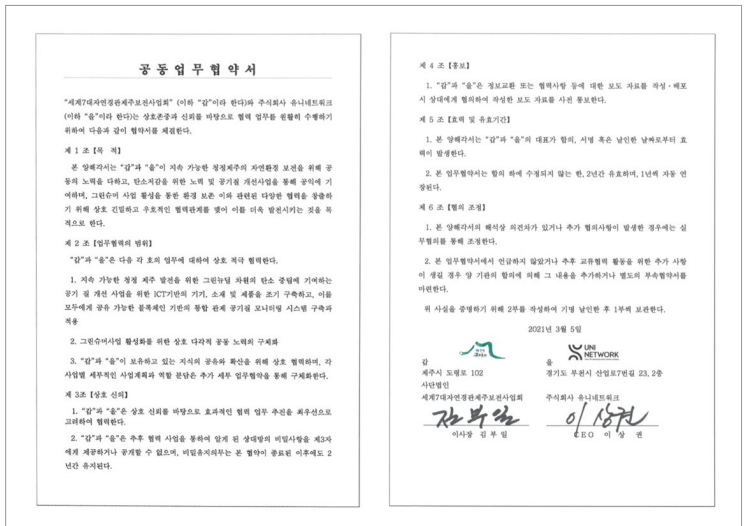 공동업무협약서
"세계7대자연경관제주보전사업회" (이하 "갑"이라 한다)와 주식회사 유니네트워크
(이하 "을"이라 한다)는 상호존중과 신뢰를 바탕으로 협력 업무를 원활히 수행하기
위하여 다음과 같이 협약서를 체결한다.
제 1 조【목 적】
본 양해각서는 "갑"과 "을"이 지속 가능한 청정제주의 자연환경 보전을 위해 공
동의 노력을 다하고, 탄소저감을 위한 노력 및 공기질 개선사업을 통해 공익에 기
여하며, 그린슈머 사업 활성을 통한 환경 보존 이와 관련된 다양한 협력을 창출하
기 위해 상호 긴밀하고 우호적인 협력관계를 맺어 이를 더욱 발전시키는 것을 목
적으로 한다.
제 2 조【업무협력의 범위】
"갑"과 "을"은 다음 각 호의 업무에 대하여 상호 적극 협력한다.
1. 지속 가능한 청정 제주 발전을 위한 그린뉴딜 차원의 탄소 중립에 기여하는
공기 질 개선 사업을 위한 ICT기반의 기기, 소재 및 제품을 조기 구축하고, 이를
모두에게 공유 가능한 블록체인 기반의 통합 관제 공기질 모니터링 시스템 구축과
적용
2. 그린슈머사업 활성화를 위한 상호 다각적 공동 노력의 구체화
3. "갑"과 "을"이 보유하고 있는 지식의 공유와 확산을 위해 상호 협력하며, 각
사업별 세부적인 사업계획과 역할 분담은 추가 세부 업무협약을 통해 구체화한다.
제 3조【상호 신의】
1. "갑"과 "을"은 상호 신뢰를 바탕으로 효과적인 협력 업무 추진을 최우선으로
고려하여 협력한다.
2. "갑"과 "을"은 추후 협력 사업을 통하여 알게 된 상대방의 비밀사항을 제3자
에게 제공하거나 공개할 수 없으며, 비밀유지의무는 본 협약이 종료된 이후에도 2
년간 유지된다.
제 4 조【홍보】
1. "갑"과 "을"은 정보교환 또는 협력사항 등에 대한 보도 자료를 작성·배포
시 상대에게 협의하여 작성한 보도 자료를 사전 통보한다.
제 5 조【효력 및 유효기간】
1. 본 양해각서는 "갑"과 "을"의 대표가 합의, 서명 혹은 날인한 날짜로부터 효
력이 발생한다.
2. 본 업무협약서는 합의 하에 수정되지 않는 한, 2년간 유효하며, 1년씩 자동 연
장된다.
제 6 조【협의 조정】
1. 본 양해각서의 해석상 의견차이가 있거나 추가 협의사항이 발생한 경우에는 실
무협의를 통해 조정한다.
2. 본 업무협약서에서 언급하지 않았거나 추후 교류협력 활동을 위한 추가 사항
이 생길 경우 양 기관의 합의에 의해 그 내용을 추가하거나 별도의 부속협약서를
마련한다.
위 사실을 증명하기 위해 2부를 작성하여 기명 날인한 후 1부씩 보관한다.
2021년 3월 5일
갑
제주시 도령로 102
사단법인
세계7대자연경관제주보전사업회
김부일
이사장 김 부 일
UNI
NETWORK
을
경기도 부천시 산업로7번길 23, 2층
주식회사 유니네트워크
이상권
CEO 이 상 권